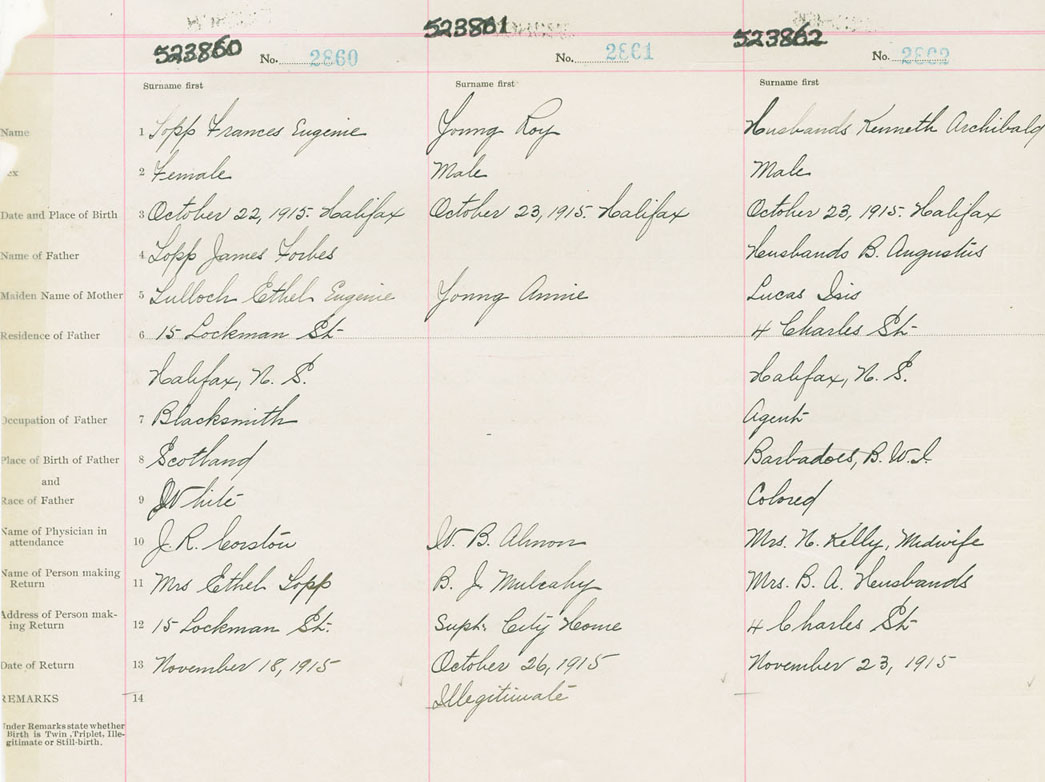 523860 523861 523862
No. 2860 No. 2861 No. 2862
Surname first Surname first Surname first
Name 1 Topp Frances Eugenie Young Roy Husbands Kenneth Archibald
ex 2 Female Male Male
Date and Place of Birth 3 October 22, 1915. Halifax October 23, 1915. Halifax October 23, 1915. Halifax
Name of Father 4 Topp James Forbes Husbands B. Augustus
Maiden Name of Mother 5 Tulloch Ethel Eugenie Young Annie Lucas Isis
Residence of Father 6 15 Lockman St. 4 Charles St.
Halifax, N. S. Halifax, N. S.
Occupation of Father 7 Blacksmith Agent
Place of Birth of Father 8 Scotland Barbadoes, B. W. I.
and
Race of Father 9 White Colored
Name of Physician in
attendance 10 J. R. Corston W. B. Almon Mrs. N. Kelly, Midwife
Name of Person making
Return 11 Mrs Ethel Topp B. J. Mulcahy Mrs. B. A. Husbands
Address of Person mak-
ing Return 12 15 Lockman St. Supt. City Home 4 Charles St.
Date of Return 13 November 18, 1915 October 26, 1915 November 23, 1915
REMARKS 14 Illegitimate
Under Remarks state whether
Birth is Twin, Triplet, Ille-
gitimate or Still-birth.